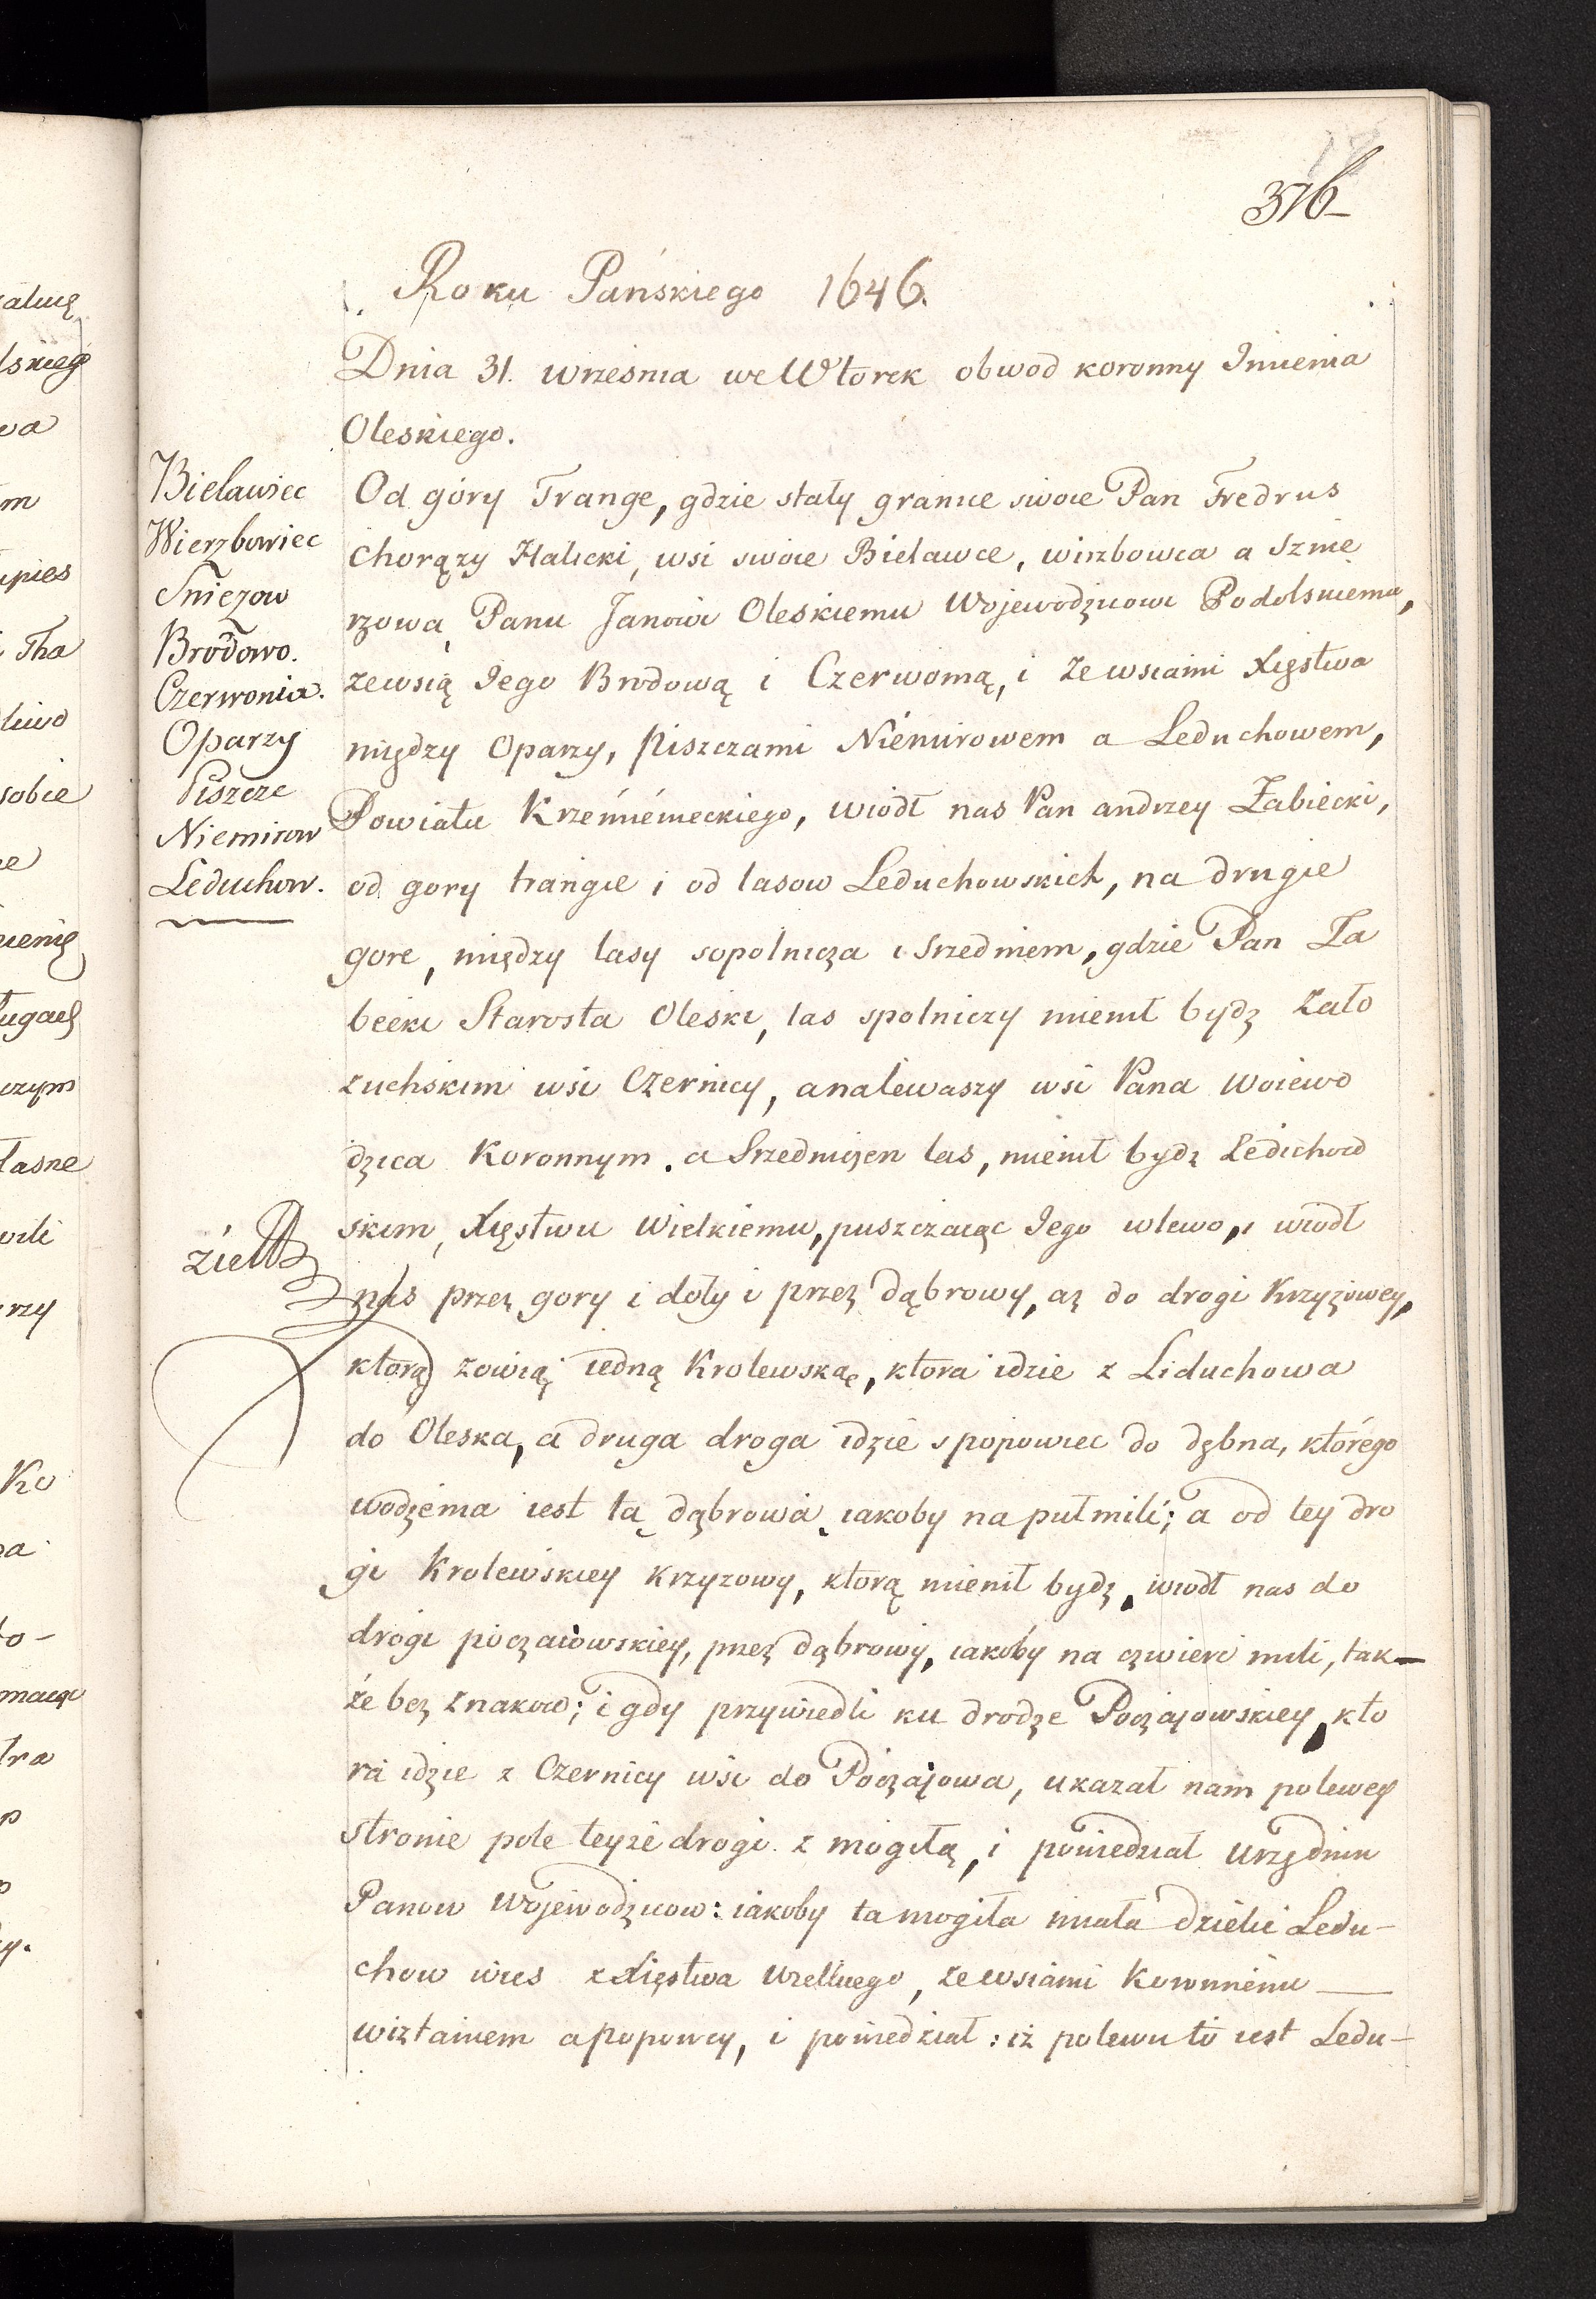 376
Roku Pańskiego 1646.
Dnia 31. wrzesnia we Wtorek obwod koronny Imienia
Oleskiego.
Bielawiec
Wierzbowiec
Sniezow
Brodowo.
Czerwonia.
Oparzy
Piszcze
Niemirow
Leduchow.
Od góry Trange, gdzie stały granice swoie Pan Fredrus
Chorązy Halicki, wsi swoie Bielawce, wirzbowca a Sznie
rzowa Panu Janowi Oleskiemu Wojewodzicowi Podolskiemu,
zewsią Jego Brodową i Czerwomą, i Zewsiami Xięstwa
między Oparzy, Piszczami Niemirowem a Leduchowem,
Powiatu Krzemiemeckiego, wiódł nas Pan andrzey Zabiecki,
od gory trangie i od lasow Leduchowskich, na drugie
gore, między lasy sopolnicza i Srzedniem, gdzie Pan Za
biecki Starosta Oleski, las spolniczy mienił bydz Zało
zuchskim wsi Czernicy, analewaszy wsi Pana Woiewo
dzica Koronnym. a Srzednijen las, mienił bydz Ledichow
skim, Xięstwu Wielkiemu, puszczaiąc Jego wlewo, i wiodł
nas przez gory i doły i przez dąbrowy, az do drogi Krzyzowey,
ktorą zowią iedną Krolewskąe, ktora idzie z Liduchowa
do Oleska, a druga droga idzie spopowiec do dębna, którego
wodzema iest ta dąbrowa iakoby na pułmili; a od tey dro
gi Krolewskiey krzyzowy, ktorą mienił bydz, wiodł nas do
drogi poczaiowskiey, przez dąbrowy, iakoby na czwierć mili, tak
że bez znakow; i gdy przywiedli ku drodze Poczajowskiey, kto
ra idzie z Czernicy wsi do Poczajowa, ukazał nam polewey
stronie pole teyze drogi z mogiłą, i powiedział Urzędnik
Panow Wojewodzicow: iakoby ta mogiła miała dzielić Ledu-
chow wies z Xięstwa Wielkiego, zewsiami Koronnemi
wiztainem apopowcy, i powiedział: iż polewu to iest Ledu-